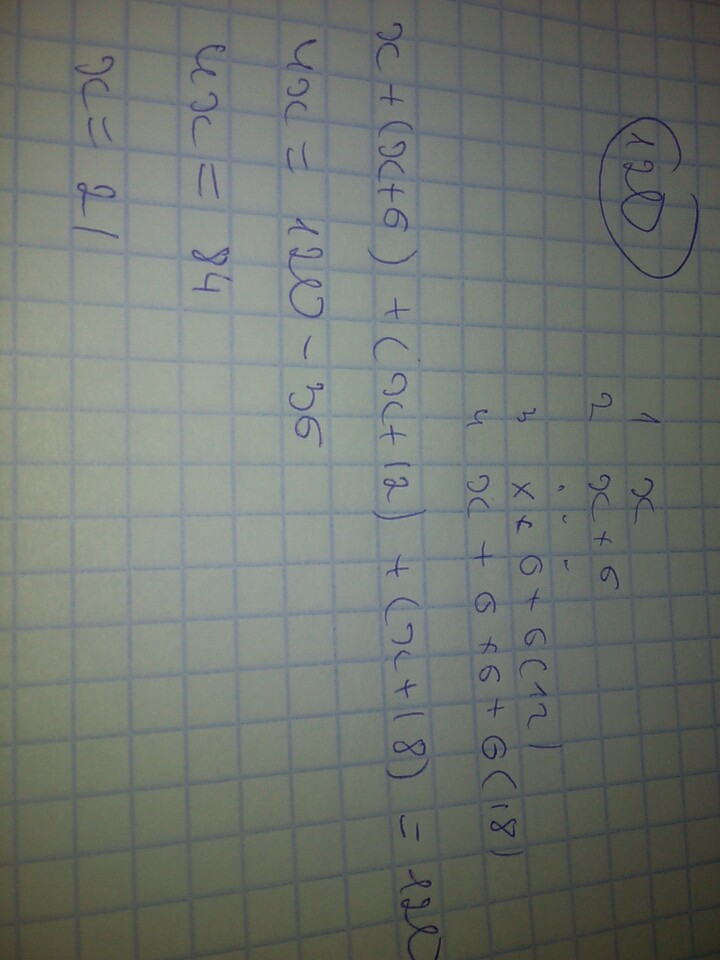 120
1 x
2 x+6
3 x+6+6(12)
4 x+6+6+6(18)
x+(x+6)+(x+12)+(x+18)=120
4x=120-36
4x=84
x=21